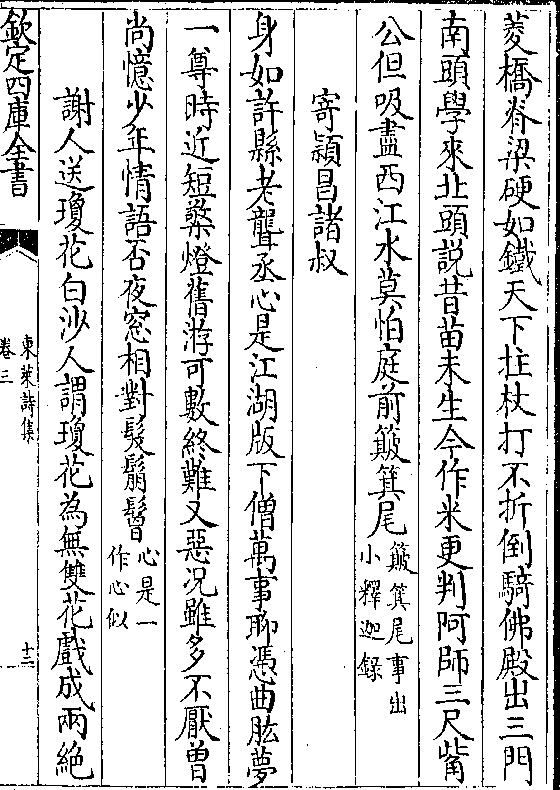 菱橋脊梁硬如鐵天下拄杖打不折倒騎佛殿出三門
南頭學來北頭説昔苗未生今作米更判阿師三尺觜
公但吸盡西江水莫怕庭前簸箕尾簸箕尾事出小釋迦錄
寄潁昌諸叔
身如許縣老聾丞心是江湖版下僧萬事聊憑曲肱夢
一尊時近短檠燈舊游可數終難又惡况雖多不厭曽
尚憶少年情語否夜窓相對髮鬅鬙心是一作心似
謝人送瓊花白沙人謂瓊花為無雙花戲成兩絶
欽定四庫全書
東萊詩集
卷三
十三